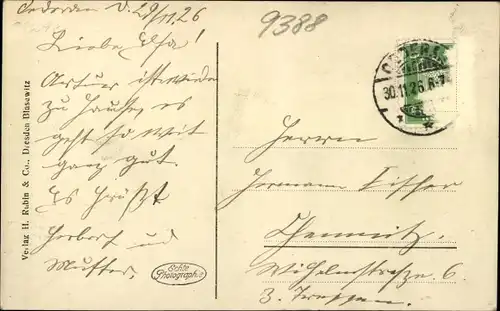 Oederan d. 29/11.26
9388
Liebe Elsa!
Artur ist wieder
zu Hause, es
geht so weit
ganz gut.
Es Grüßt
Herbert und
Mutter.
Echte
Photographie
Verlag H. Rubin & Co., Dresden Blasewitz
OEDERAN
30.11.26.6-7
Herrn
Hermann Fischer
Chemnitz.
Wilhelmstraße 6.
3. Treppen.